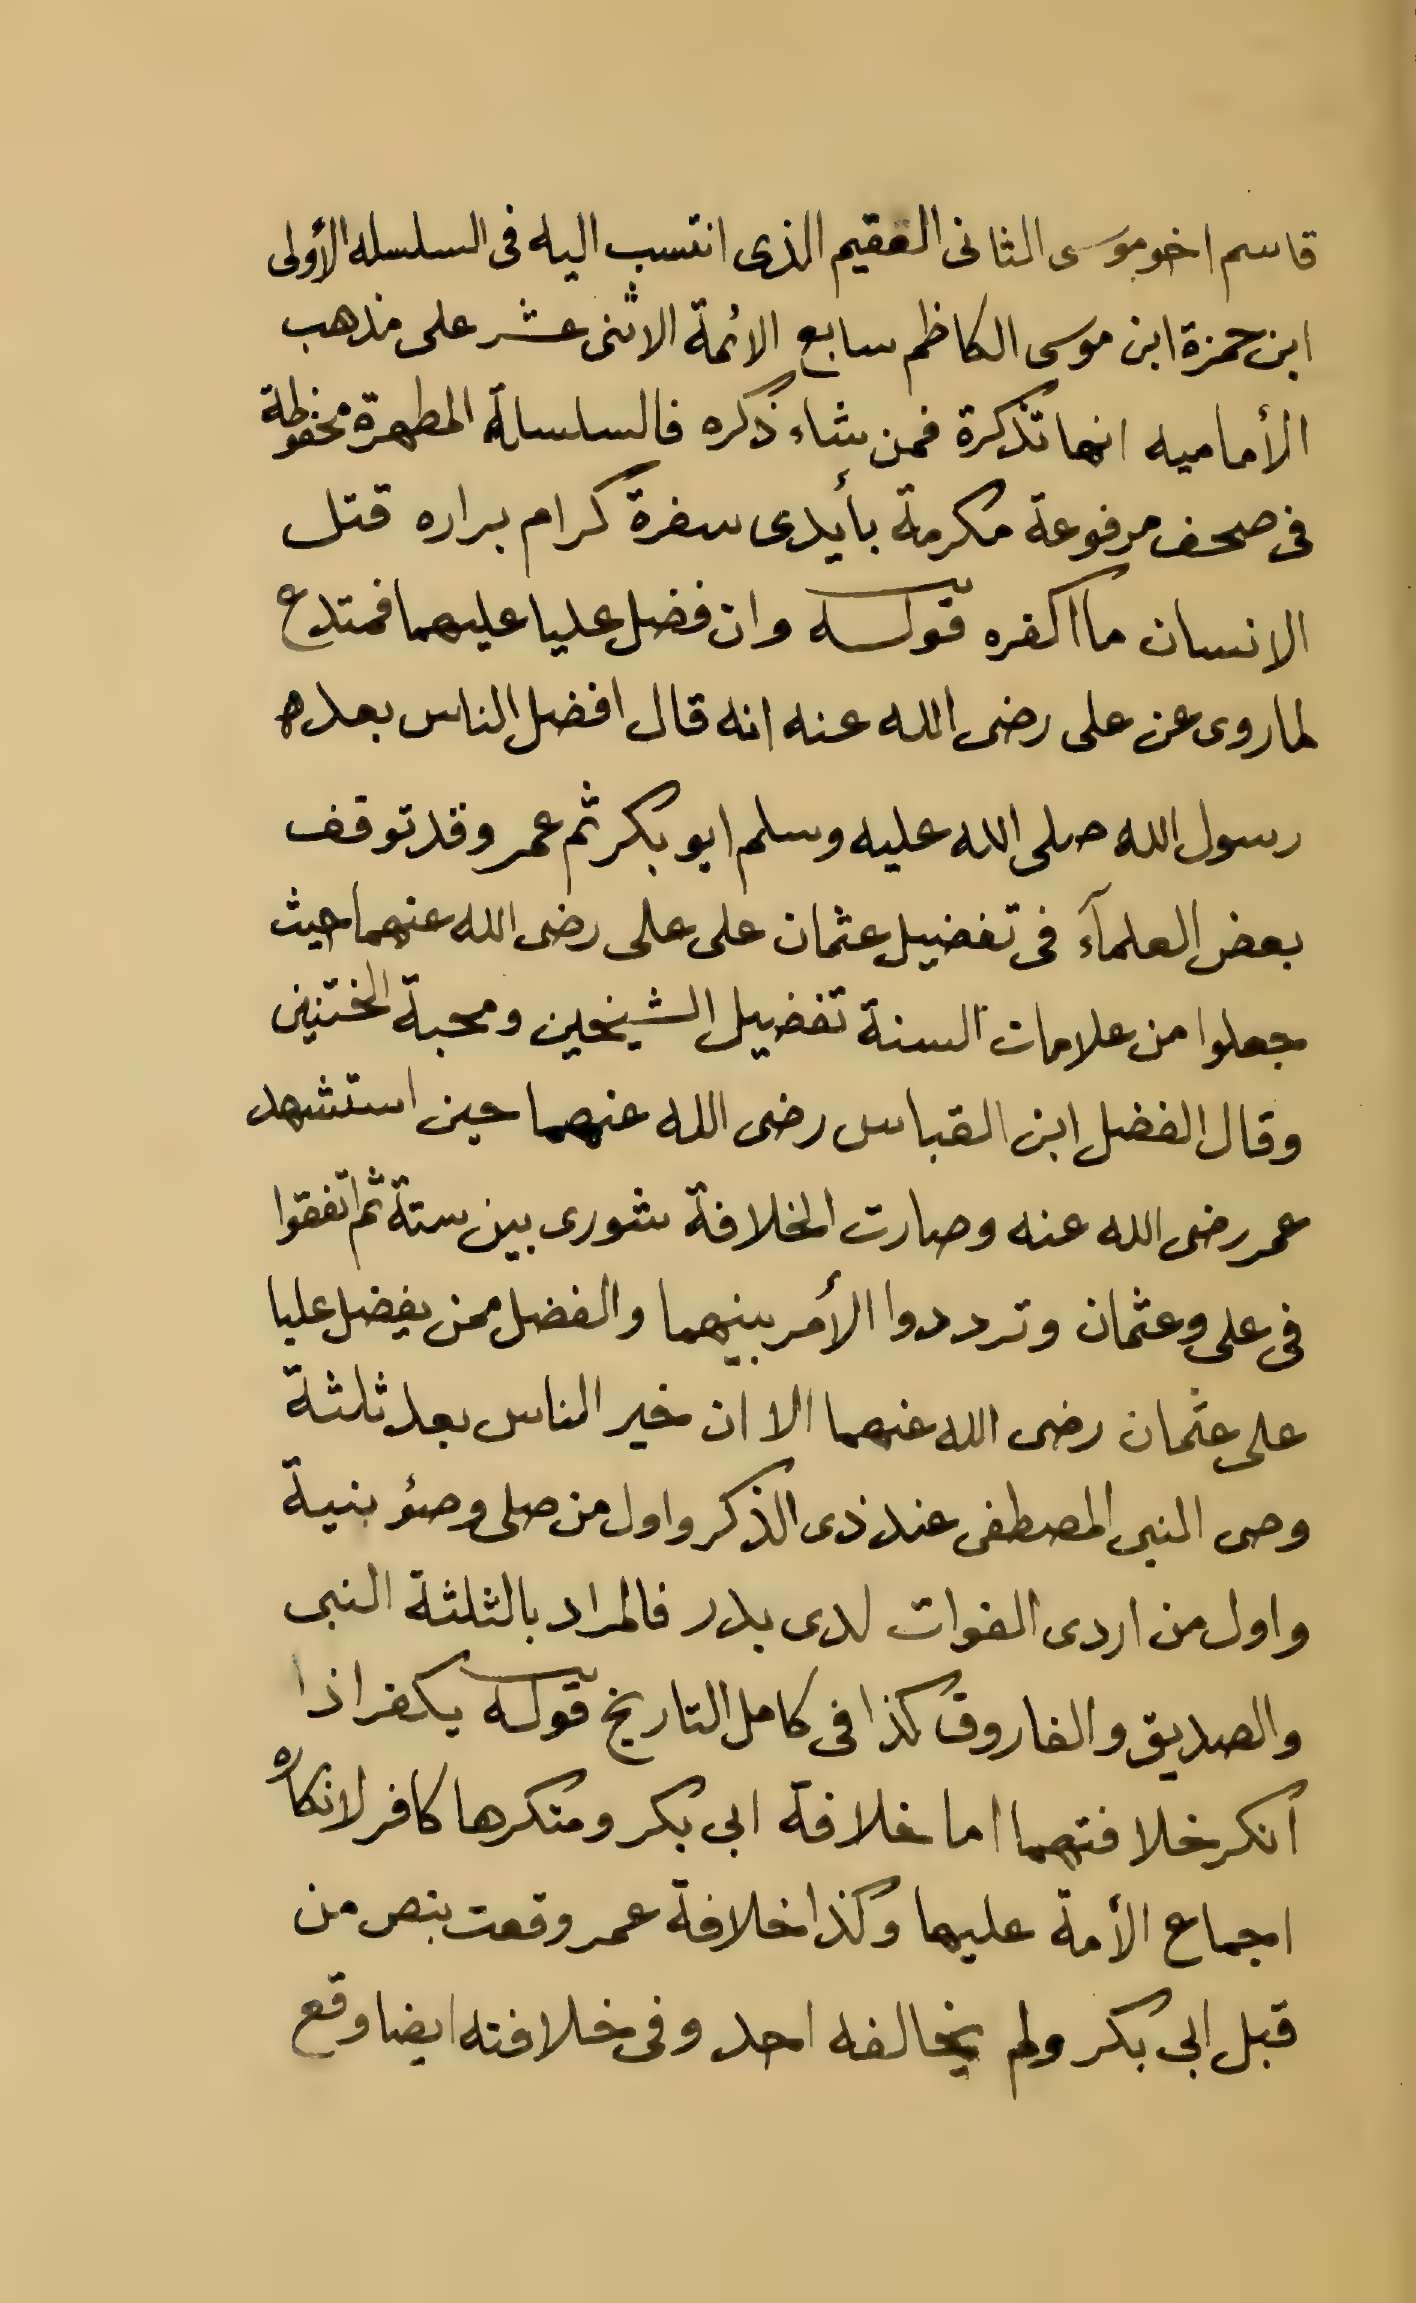 قاسم اخو موسى الثانى العقيم الذى انتسب اليه فى السلسله الأولى
ابن حمزة ابن موسى الكاظم سابع الائمة الاثنى عشر على مذهب
الأماميه انها تذكرة فمن شاء ذكره فالسلسلة المطهرة محفوظة
فى صحف مرفوعة مكرمة بأيدى سفرة كرام براره قتل
الانسان ما اكفره قوله وان فضل عليا عليهما فمبتدع
لما روى عن على رضى الله عنه انه قال افضل الناس بعده
رسول الله صلى الله عليه وسلم ابو بكر ثم عمر وقد توقف
بعض العلمآء فى تفضيل عثمان على على رضى الله عنهما حيث
جعلوا من علامات السنة تفضيل الشيخين ومحبة الختنين
وقال الفضل ابن القباس رضى الله عنهما حين استشهد
عمر رضى الله عنه وصارت الخلافة شورى بين ستة ثم اتفقوا
فى على وعثمان وترددوا الأمر بينهما والفضل ممن يفضل عليا
على عثمان رضى الله عنهما الا ان خير الناس بعد ثلثة
وصى النبى المصطفى عند ذى الذكر واول من صلى وصئو بنية
واول من اردى الغوات لدى بدر فالمراد بالثلثة النبى
والصديق والفاروق كذا فى كامل التاريخ قوله يكفر اذا
أنكر خلافتهما اما خلافة ابى بكر ومنكرها كافر لانكاره
اجماع الأمة عليها وكذا خلافة عمر وقعت بنص من
قبل ابى بكر ولم يخالفه احد وفى خلافته ايضا وقع